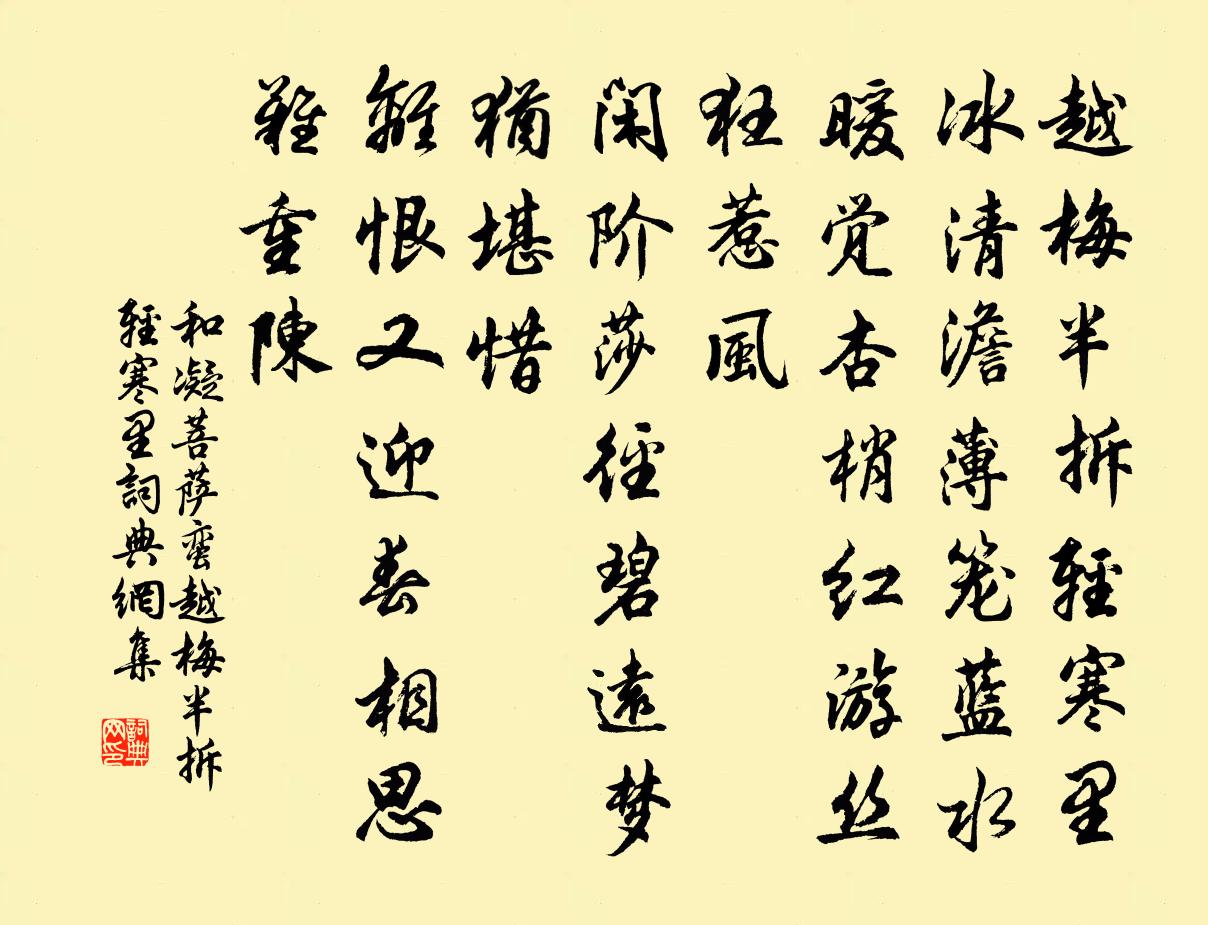 越梅半拆輕寒里
冰清澹薄笼藍水
暖觉杏梢红游丝
狂惹風
闲阶莎徑碧遠梦
猶堪惜
離恨又迎春相思
難重陳
和凝菩萨蛮越梅半拆
輕寒里詞典網集
詞典
网印